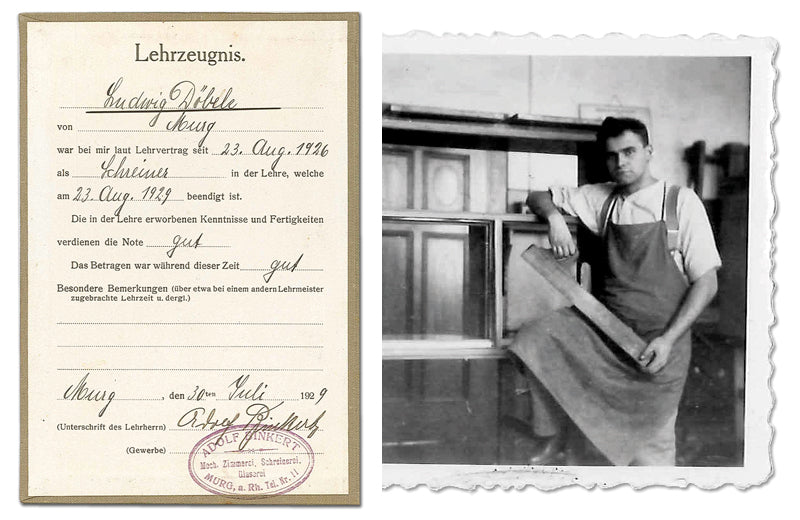 Lehrzeugnis.
Ludwig Döbele
von Murg
war bei mir laut Lehrvertrag seit 23. Aug. 1926
als Schreiner in der Lehre, welche
am 23. Aug. 1929 beendigt ist.
Die in der Lehre erworbenen Kenntnisse und Fertigkeiten
verdienen die Note gut
Das Betragen war während dieser Zeit gut
Besondere Bemerkungen (über etwa bei einem andern Lehrmeister
zugebrachte Lehrzeit u. dergl.)
Murg, den 30ten Juli 1929
(Unterschrift des Lehrherrn) Adolf Binkert
(Gewerbe)
ADOLF BINKERT
Mech. Zimmerei, Schreinerei.
Glaserei
MURG, a. Rh. Tel. Nr. 11